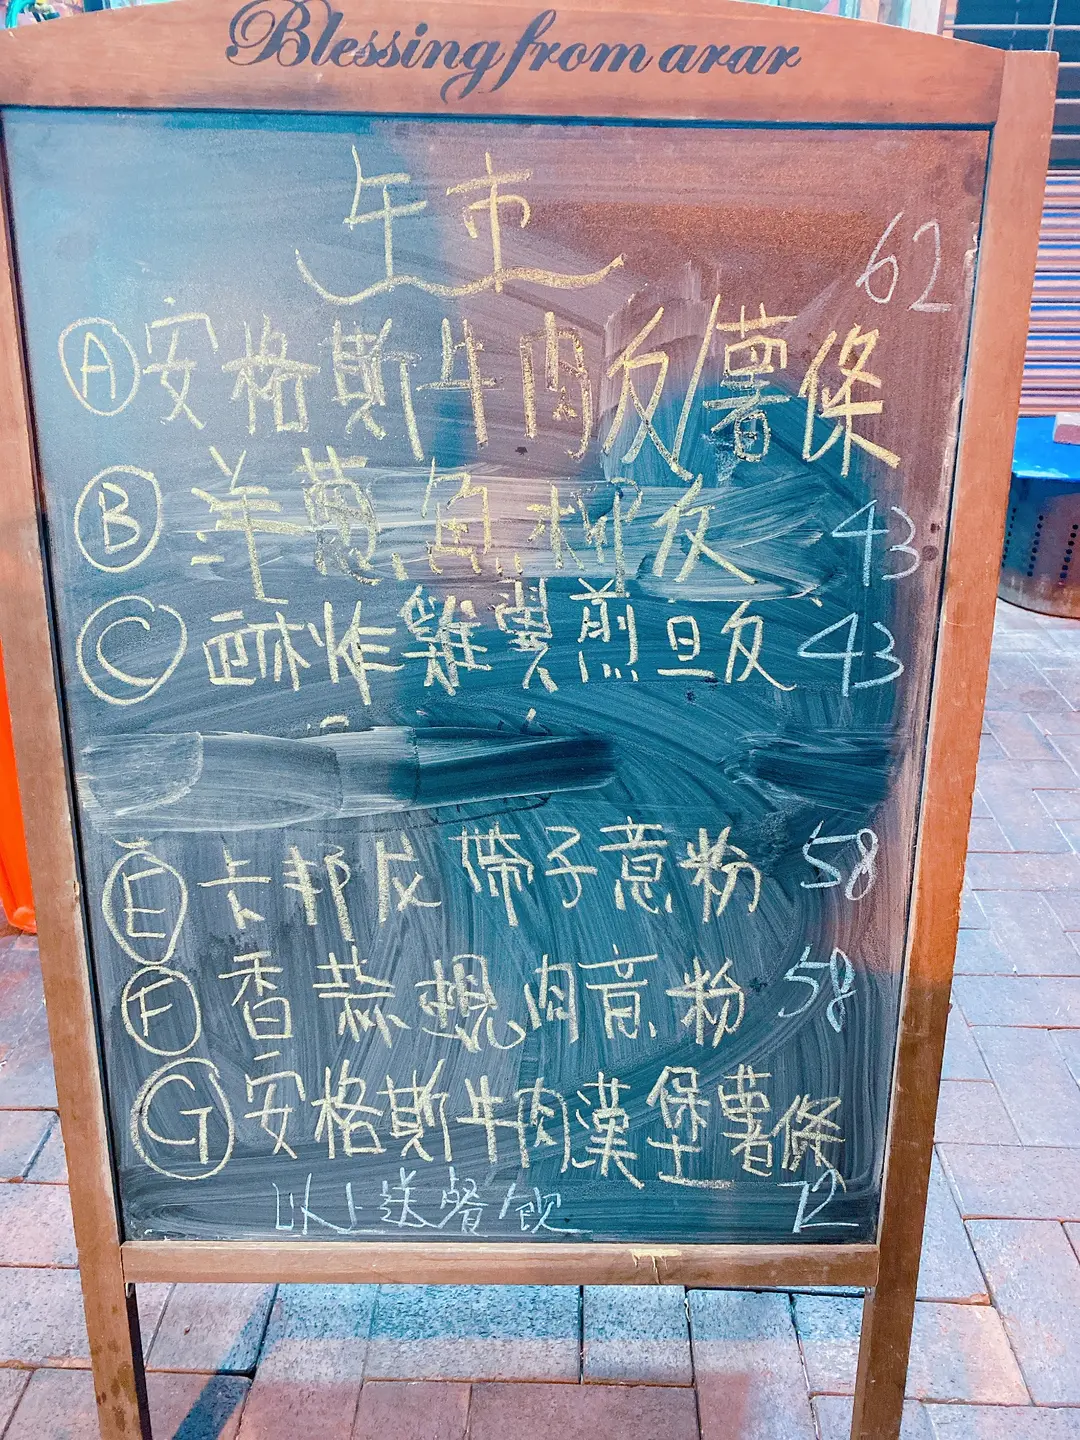 Blessing from arar
午市
62
A 安格斯牛肉反/薯條
B 洋葱魚柳反 43
C 酥炸雞翼煎旦反 43
E 卡邦尼帶子意粉 58
F 香蒜蜆肉意粉 58
G 安格斯牛肉漢堡薯條
以上送餐飲 72